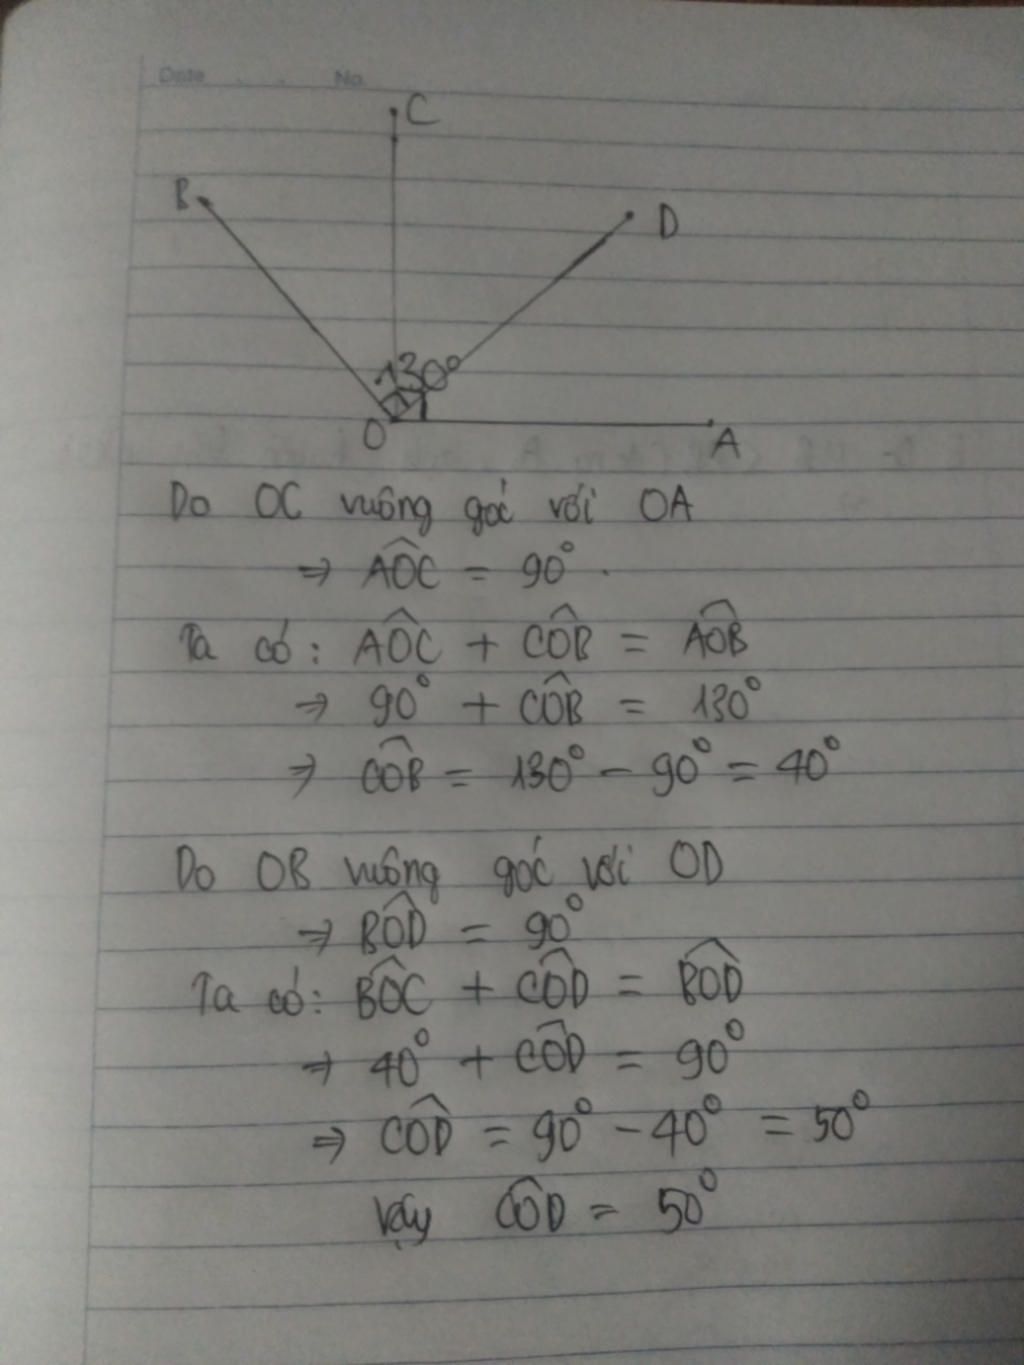 Date . . No.
C
B
D
130°
O
A
Do OC vuông góc với OA
⇒ AÔC = 90°.
Ta có: AÔC + CÔB = AÔB
⇒ 90° + CÔB = 130°
⇒ CÔB = 130° - 90° = 40°
Do OB vuông góc với OD
⇒ BÔD = 90°
Ta có: BÔC + CÔD = BÔD
⇒ 40° + CÔD = 90°
⇒ CÔD = 90° - 40° = 50°
Vậy CÔD = 50°